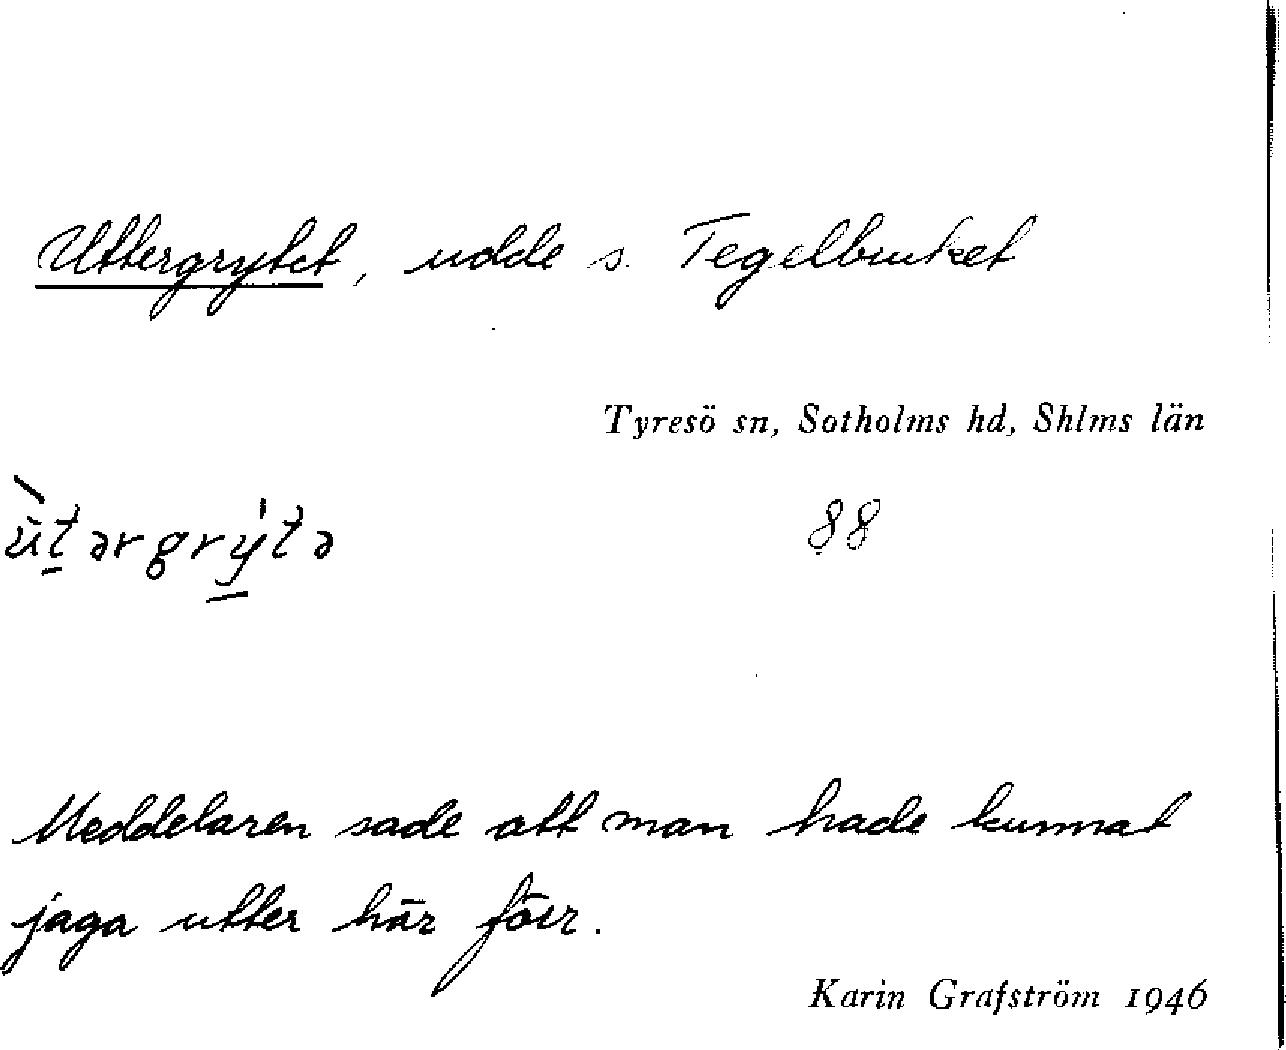 Uttergrytet, udde s. Tegelbruket
Tyresö sn, Sotholms hd, Shlms län
ùtərgrýtə 88
Meddelaren sade att man hade kunnat
jaga utter här förr.
Karin Grafström 1946